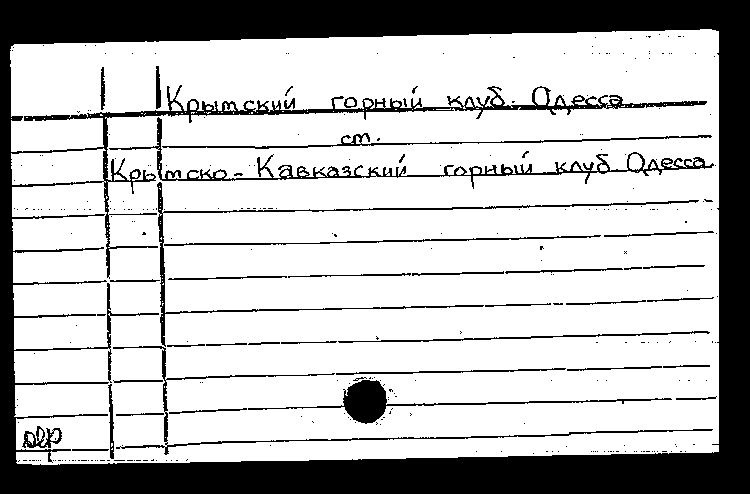 Крымский горный клуб. Одесса
ст.
Крымско-Кавказский горный клуб Одесса.